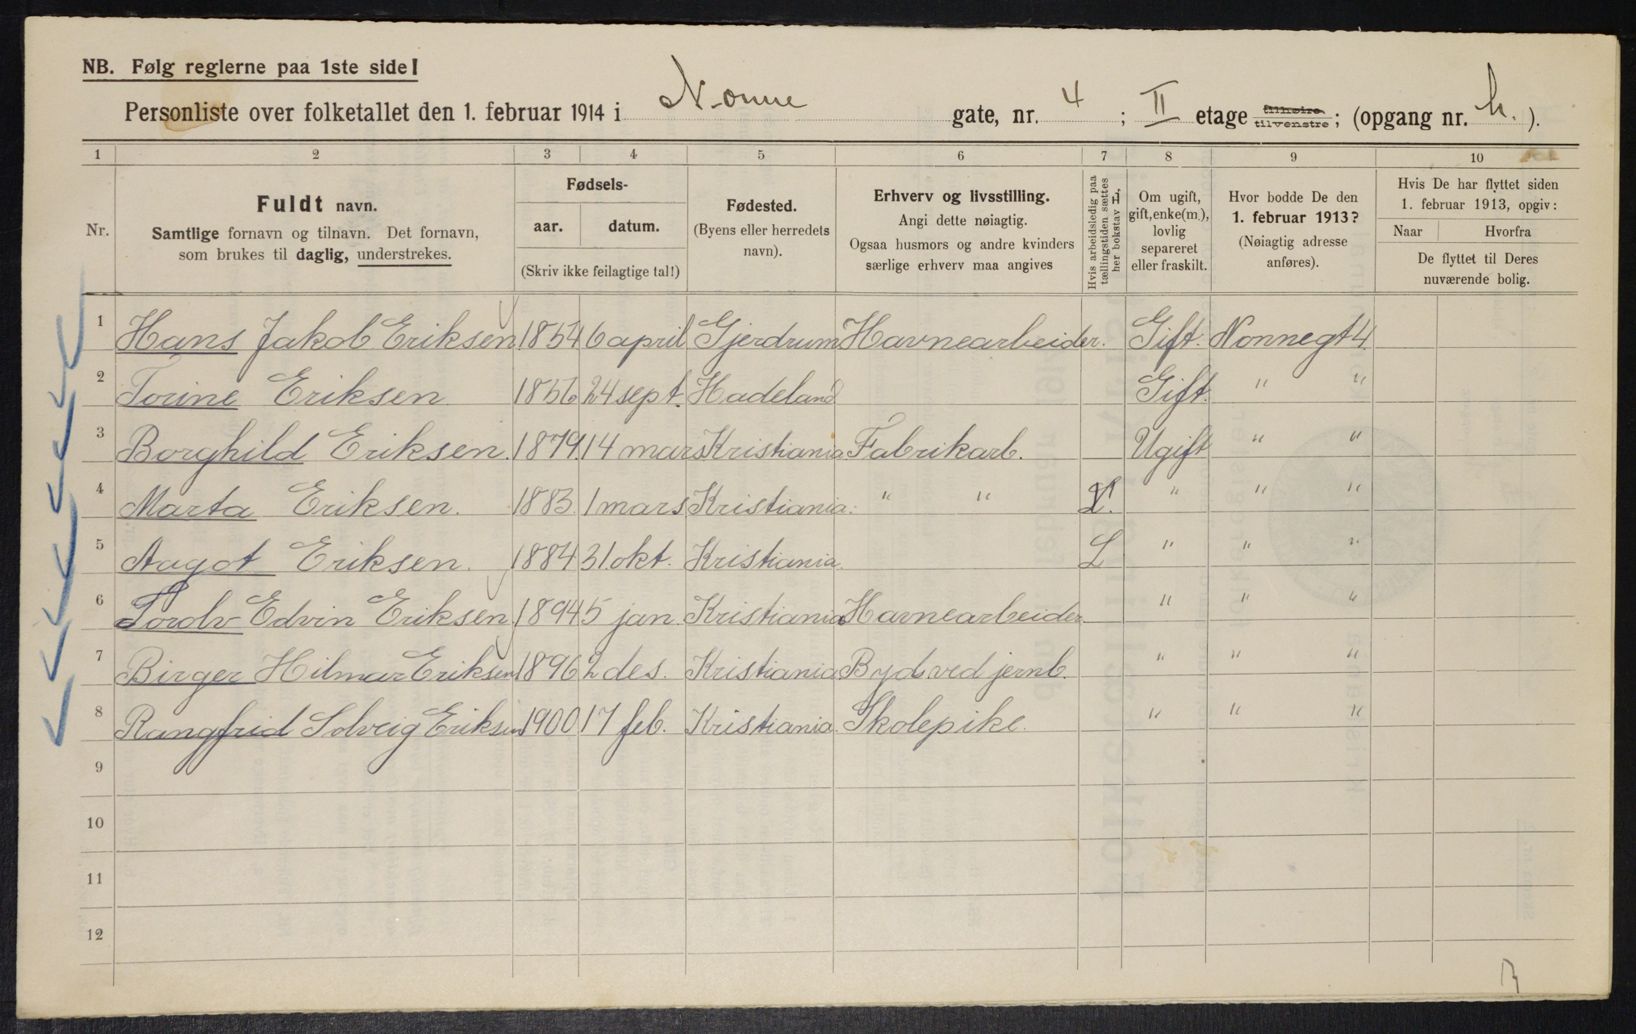 NB. Følg reglerne paa 1ste side!
Personliste over folketallet den 1. februar 1914 i Nonne gate, nr. 4 ; II etage tilhøire tilvenstre ; (opgang nr. h. ).
1 2 3 4 5 6 7 8 9 10
Nr.
Fuldt navn.
Samtlige fornavn og tilnavn. Det fornavn,
som brukes til daglig, understrekes.
Fødsels-
aar. datum.
(Skriv ikke feilagtige tal!)
Fødested.
(Byens eller herredets
navn).
Erhverv og livsstilling.
Angi dette nøiagtig.
Ogsaa husmors og andre kvinders
særlige erhverv maa angives
Hvis arbeidsledig paa
tællingstiden sættes
her bokstav L.
Om ugift,
gift, enke(m.),
lovlig
separeret
eller fraskilt.
Hvor bodde De den
1. februar 1913?
(Nøiagtig adresse
anføres).
Hvis De har flyttet siden
1. februar 1913, opgiv:
Naar Hvorfra
De flyttet til Deres
nuværende bolig.
1 Hans Jakob Eriksen 1854 6 april Gjerdrum Havnearbeider. Gift. Nonnegt 4
2 Torine Eriksen 1856 24 sept. Hadeland Gift. " "
3 Borghild Eriksen. 1879. 14 mars Kristiania Fabrikarb. Ugift " "
4 Marta Eriksen. 1883. 1 mars Kristiania. " " " " "
5 Aagot Eriksen. 1884 31. okt. Kristiania. L " " "
6 Tordv Edvin Eriksen 1894 5 jan. Kristiania Havnearbeider " " "
7 Birger Hilmar Eriksen 1896 2 des. Kristiania Byd ved jernb. " " "
8 Rangfrid Solveig Eriksen 1900 17 feb. Kristiania. Skolepike. " " "
9
10
11
12